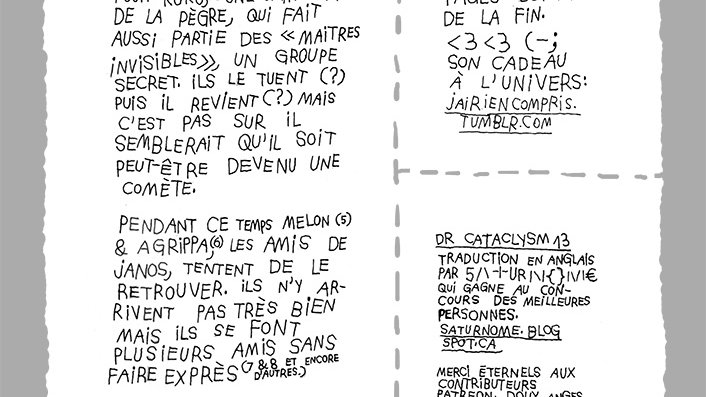 DE LA PÈGRE, QUI FAIT
AUSSI PARTIE DES «MAÎTRES
INVISIBLES», UN GROUPE
SECRET. ILS LE TUENT (?)
PUIS IL REVIENT (?) MAIS
C'EST PAS SUR IL
SEMBLERAIT QU'IL SOIT
PEUT-ÊTRE DEVENU UNE
COMÈTE.
PENDANT CE TEMPS MELON (5)
& AGRIPPA,(6) LES AMIS DE
JANOS, TENTENT DE LE
RETROUVER. ILS N'Y AR-
RIVENT PAS TRÈS BIEN
MAIS ILS SE FONT
PLUSIEURS AMIS SANS
FAIRE EXPRÈS (7 & 8 ET ENCORE
D'AUTRES.)
DE LA FIN.
<3 <3 (-;
SON CADEAU
À L'UNIVERS:
JAIRIENCOMPRIS.
TUMBLR.COM
DR CATACLYSM 13
TRADUCTION EN ANGLAIS
PAR 5/\-|-UR|\|{}|\/|€
QUI GAGNE AU CON-
COURS DES MEILLEURES
PERSONNES.
SATURNOME.BLOG
SPOT.CA
MERCI ÉTERNELS AUX
CONTRIBUTEURS
PATREON, DOUX ANGES